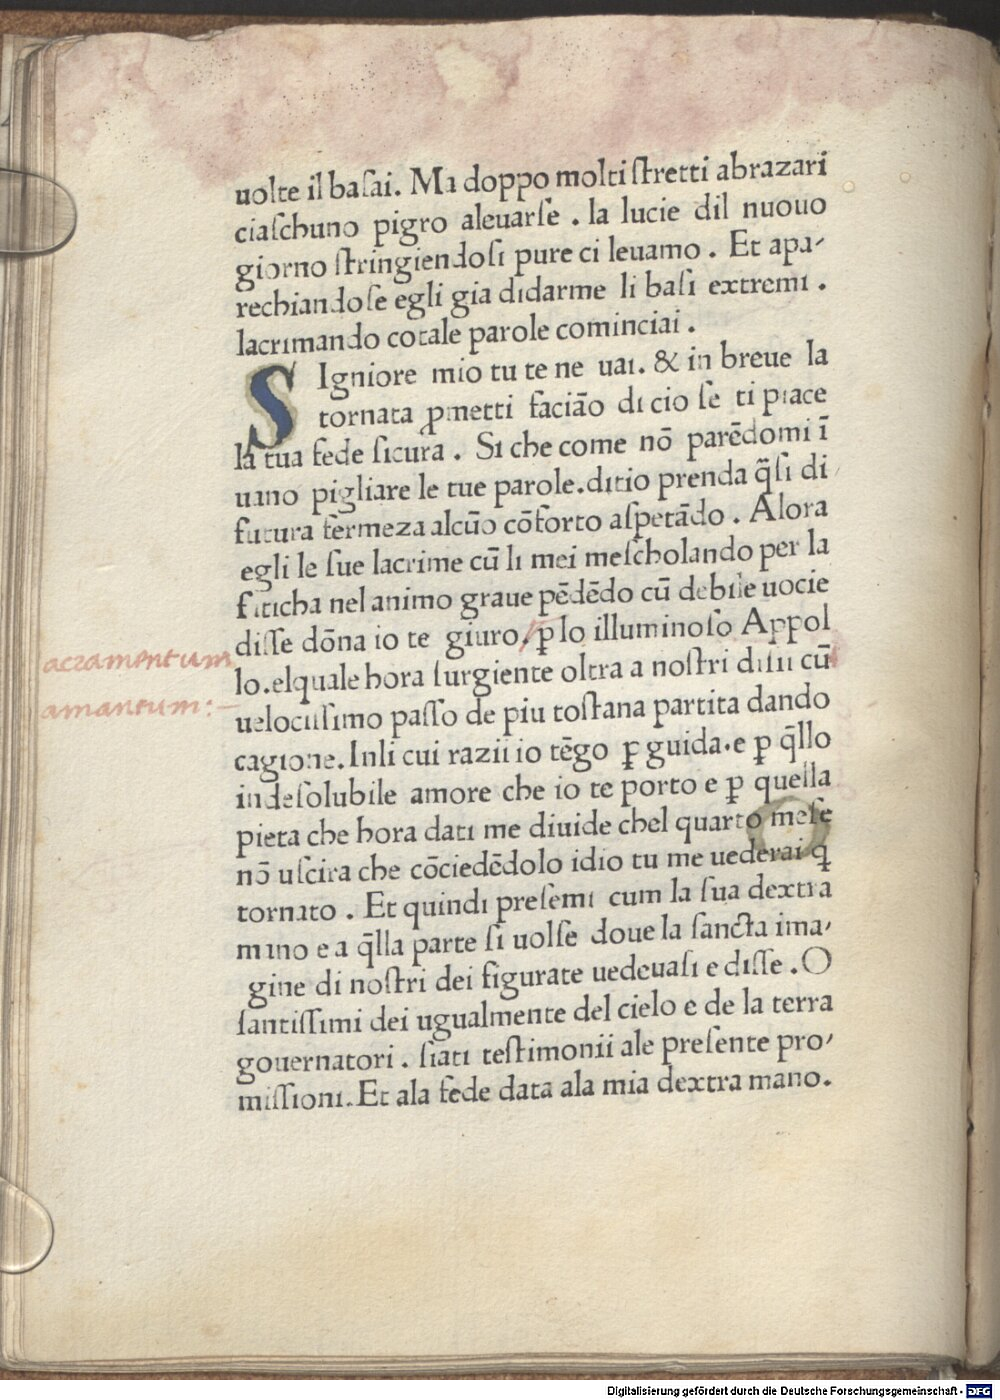 uolte il baſai. Ma doppo molti ſtretti abrazari
ciaſchuno pigro aleuarſe . la lucie dil nuouo
giorno ſtringiendoſi pure ci leuamo . Et apa-
rechiandoſe egli gia didarme li baſi extremi .
lacrimando cotale parole cominciai .
SIgniore mio tu te ne uai. & in breue la
tornata ꝓmetti faciāo di cio ſe ti piace
la tua fede ſicura . Si che come nō parēdomi ī
uano pigliare le tue parole.ditio prenda q̄ſi di
futura fermeza alcūo cōforto aſpetādo . Alora
egli le ſue lacrime cū li mei meſcholando per la
faticha nel animo graue pēdēdo cū debile uocie
diſſe dōna io te giuro. ꝑ lo illuminoſo Appol
lo.elquale hora ſurgiente oltra a noſtri diſii cū
uelociſſimo paſſo de piu toſtana partita dando
cagione. Inli cui razii io tēgo ꝑ guida.e ꝑ q̄llo
indeſolubile amore che io te porto e ꝑ quella
pieta che hora dati me diuide chel quarto meſe
nō uſcira che cōciedēdolo idio tu me uederai q̄
tornato . Et quindi preſemi cum la ſua dextra
mano e a q̄lla parte ſi uolſe doue la ſancta ima-
gine di noſtri dei figurate uedeuaſi e diſſe . O
ſantiſſimi dei ugualmente del cielo e de la terra
gouernatori . ſiati teſtimonii ale preſente pro-
miſſioni. Et ala fede data ala mia dextra mano.
acramentum
amantum:-
Digitalisierung gefördert durch die Deutsche Forschungsgemeinschaft - DFG